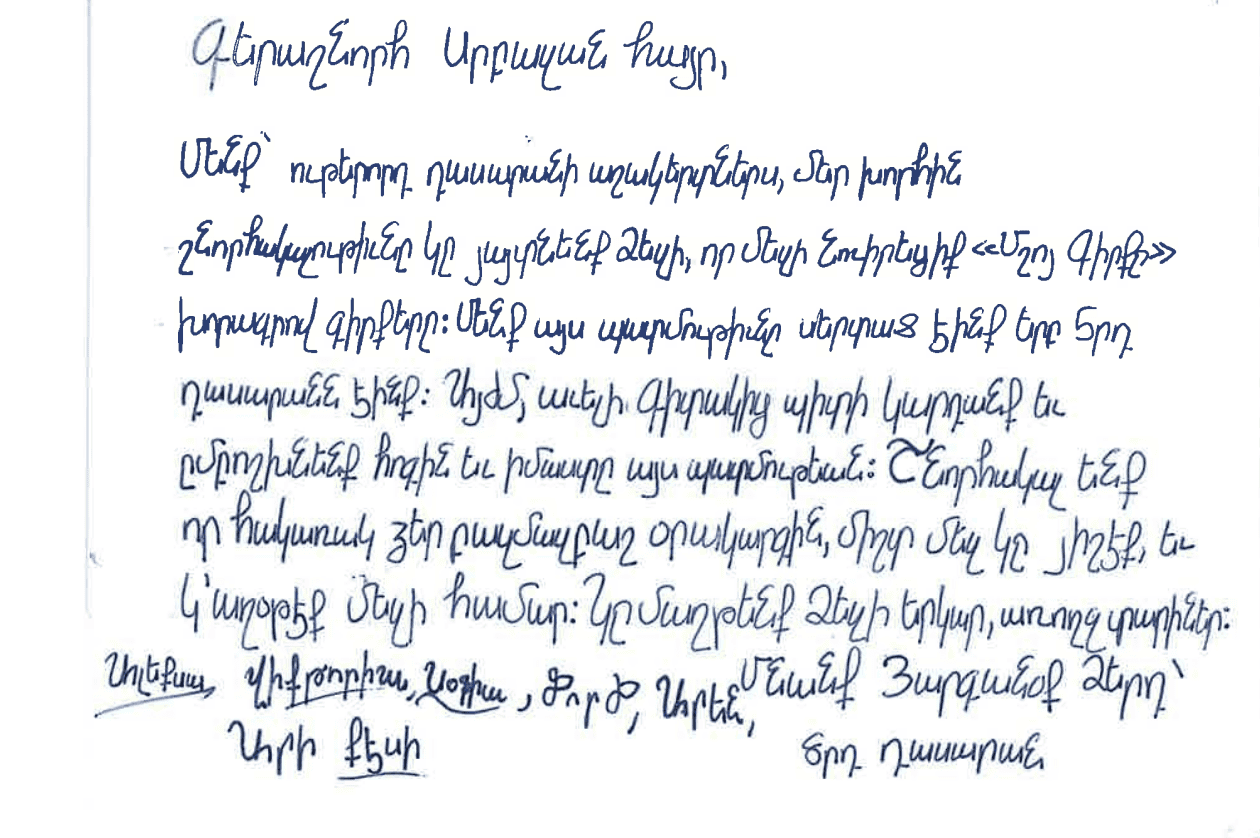 Գերաշնորհ Սրբազան հայր,
Մենք՝ ութերորդ դասարանի աշակերտներս, մեր խորհին
շնորհակալութիւնը կը յայտնենք Ձեզի, որ մեզի նուիրեցիք «Մշոյ Գիրքը»
խորագրով գիրքերը: Մենք այս պատմութիւնը սերտած էինք երբ 5րդ
դասարանն էինք: Այժմ, աւելի գիտակից պիտի կարդանք եւ
ըմբոշխնենք հոգին եւ իմաստը այս պատմութեան: Շնորհակալ ենք
որ հակառակ ձեր բազմազբաղ օրակարգին, միշտ մեզ կը յիշէք, եւ
կ՚աղօթէք մեզի համար: Կը մաղթենք Ձեզի երկար, առողջ տարիներ:
Մնանք Յարգանօք Ձերդ՝
Ալեքսա, Վիքթորիա, Սօֆիա, Ժորժ, Արեն,
Արի Քէսի
8րդ դասարան